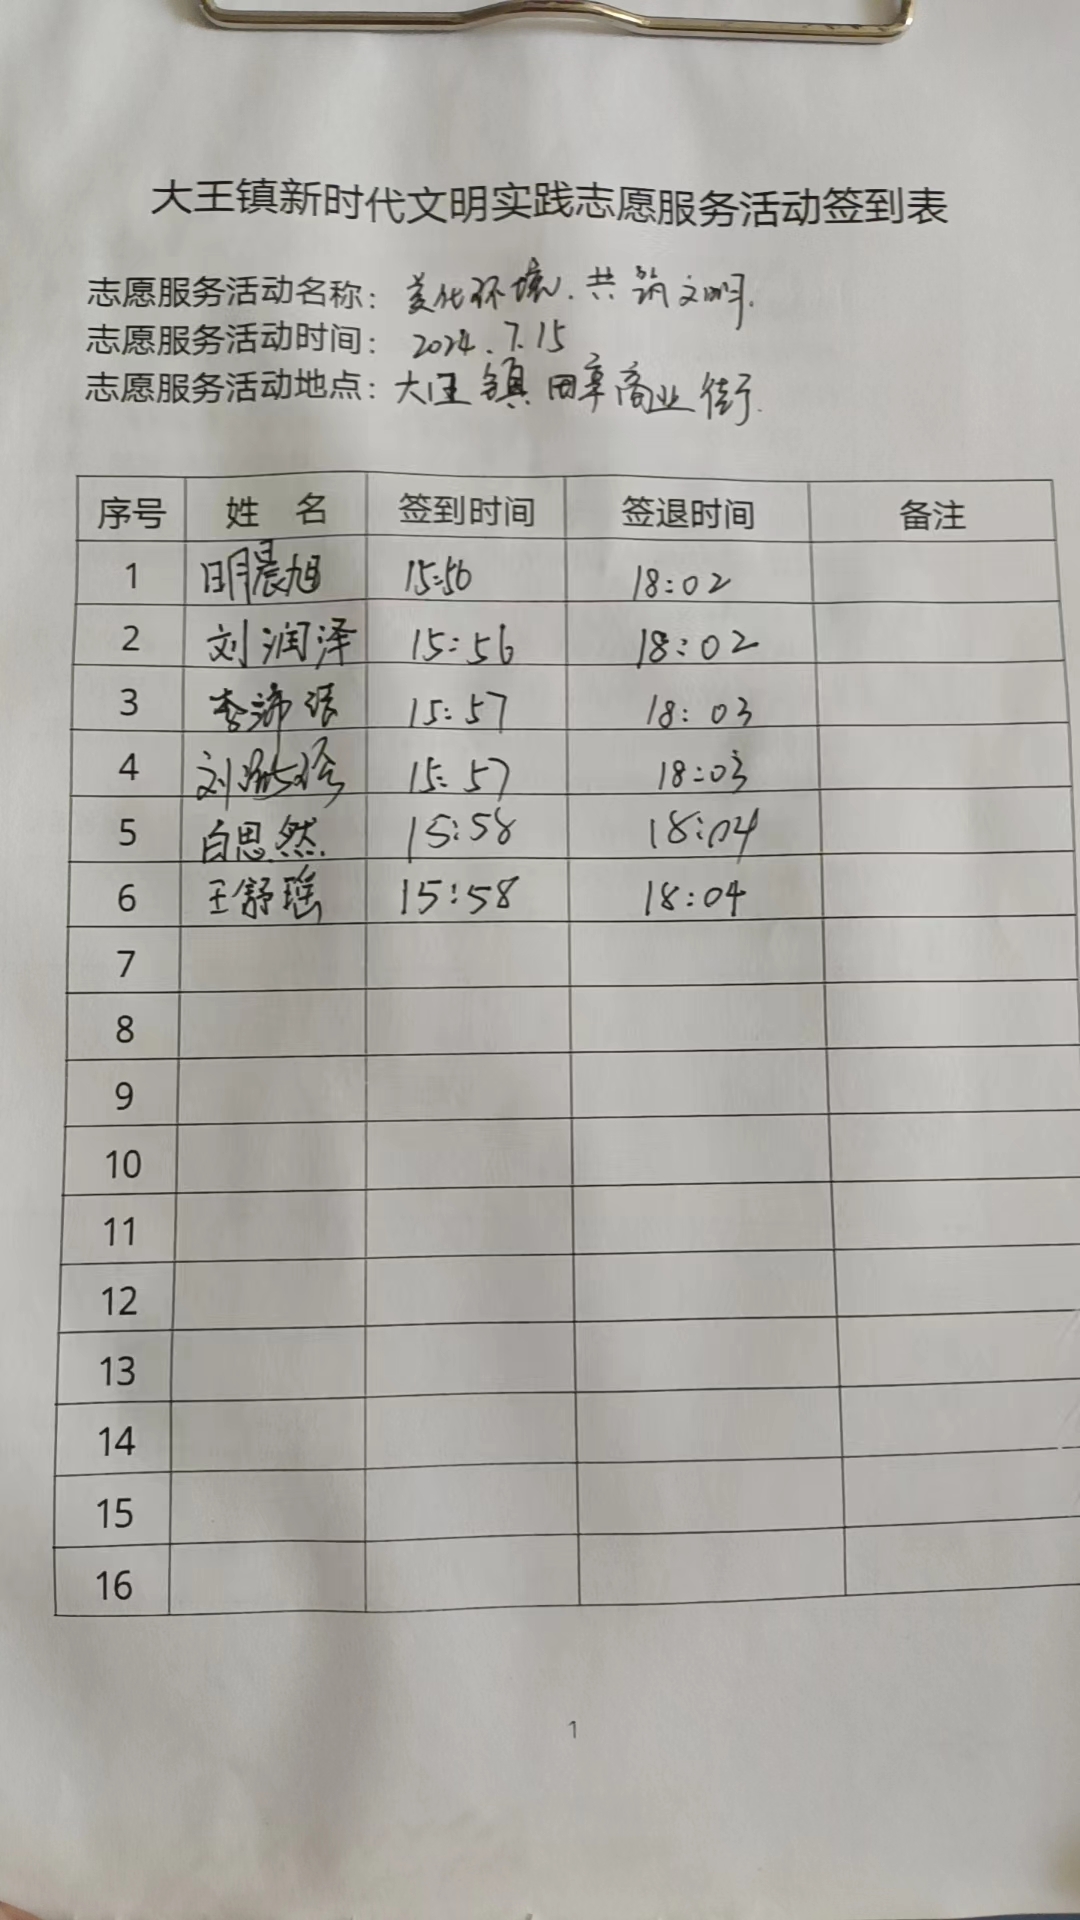 大王镇新时代文明实践志愿服务活动签到表
志愿服务活动名称：美化环境.共筑文明.
志愿服务活动时间：2024.7.15
志愿服务活动地点：大王镇田章商业街.
序号 姓 名 签到时间 签退时间 备注
1 明晨旭 15:56 18:02
2 刘润泽 15:56 18:02
3 李沛 15:57 18:03
4 刘 15:57 18:03
5 白思然 15:58 18:04
6 王舒瑶 15:58 18:04
7
8
9
10
11
12
13
14
15
16
1